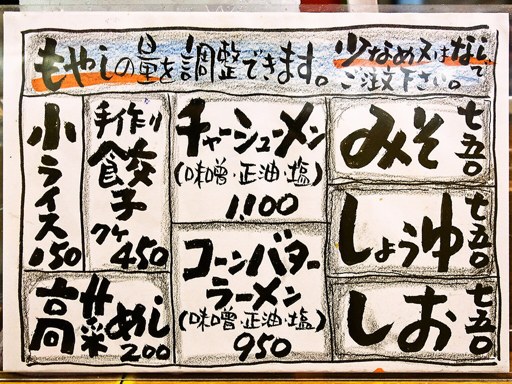 もやしの量を調整できます。少なめ又はなしでご注文下さい。
みそ 七五〇
しょうゆ 七五〇
しお 七五〇
チャーシューメン
(味噌・正油・塩)
1,100
コーンバター
ラーメン
(味噌・正油・塩)
950
手作り
餃子
5ケ450
小ライス
150
高菜めし
200